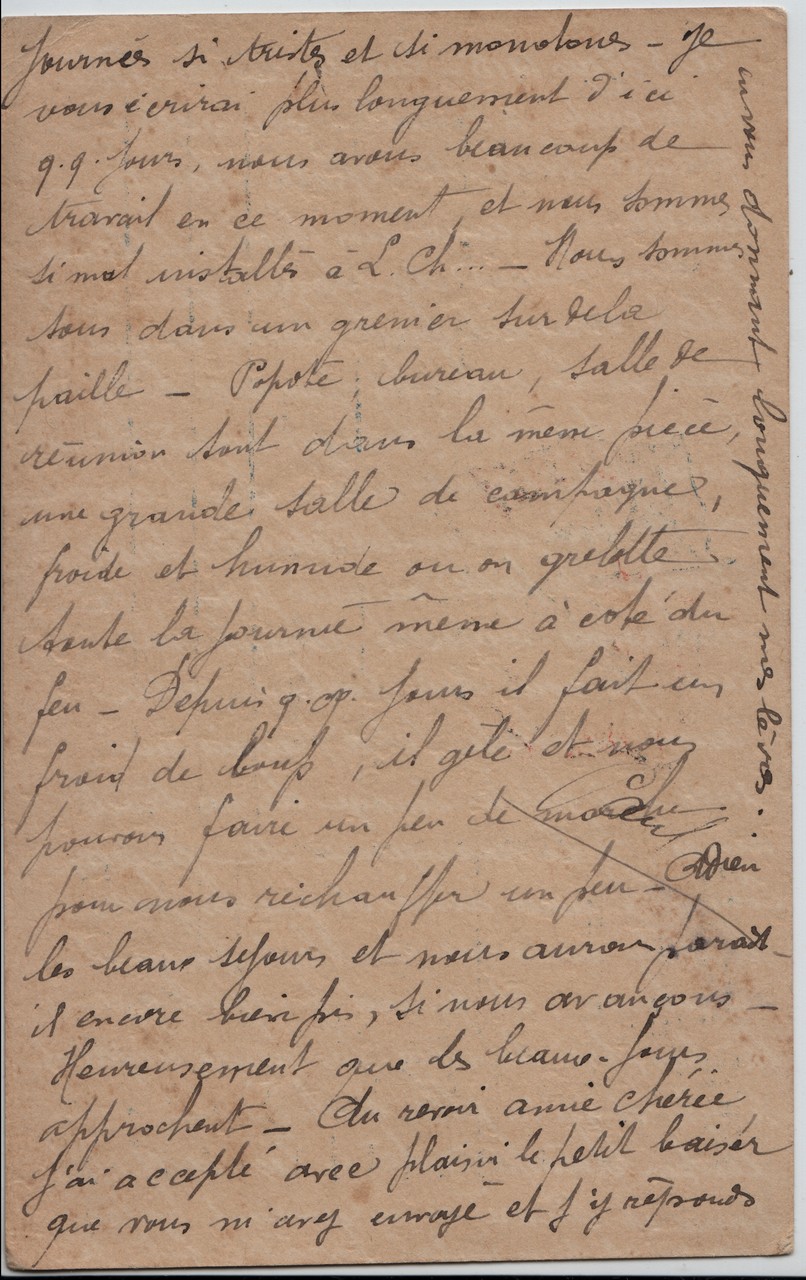 journées si tristes et si monotones - Je
vous écrirai plus longuement d'ici
q.q. jours, nous avons beaucoup de
travail en ce moment, et nous sommes
si mal installés à L. Ch... - Nous sommes
tous dans un grenier sur de la
paille - Popote, bureau, salle de
réunion tout dans la même pièce,
une grande salle de campagne,
froide et humide ou on grelotte
toute la journée même à coté du
feu - Depuis q.q. jours il fait un
froid de loup, il gèle et nous
pouvons faire un peu de marche
pour nous réchauffer un peu - Adieu
les beaux séjours et nous aurons parait-
il encore bien pis, si nous avançons -
Heureusement que les beaux-jours
approchent - Au revoir amie chérie
j'ai accepté avec plaisir le petit baiser
que vous m'avez envoyé et j'y réponds
en vous donnant longuement mes lèvres.